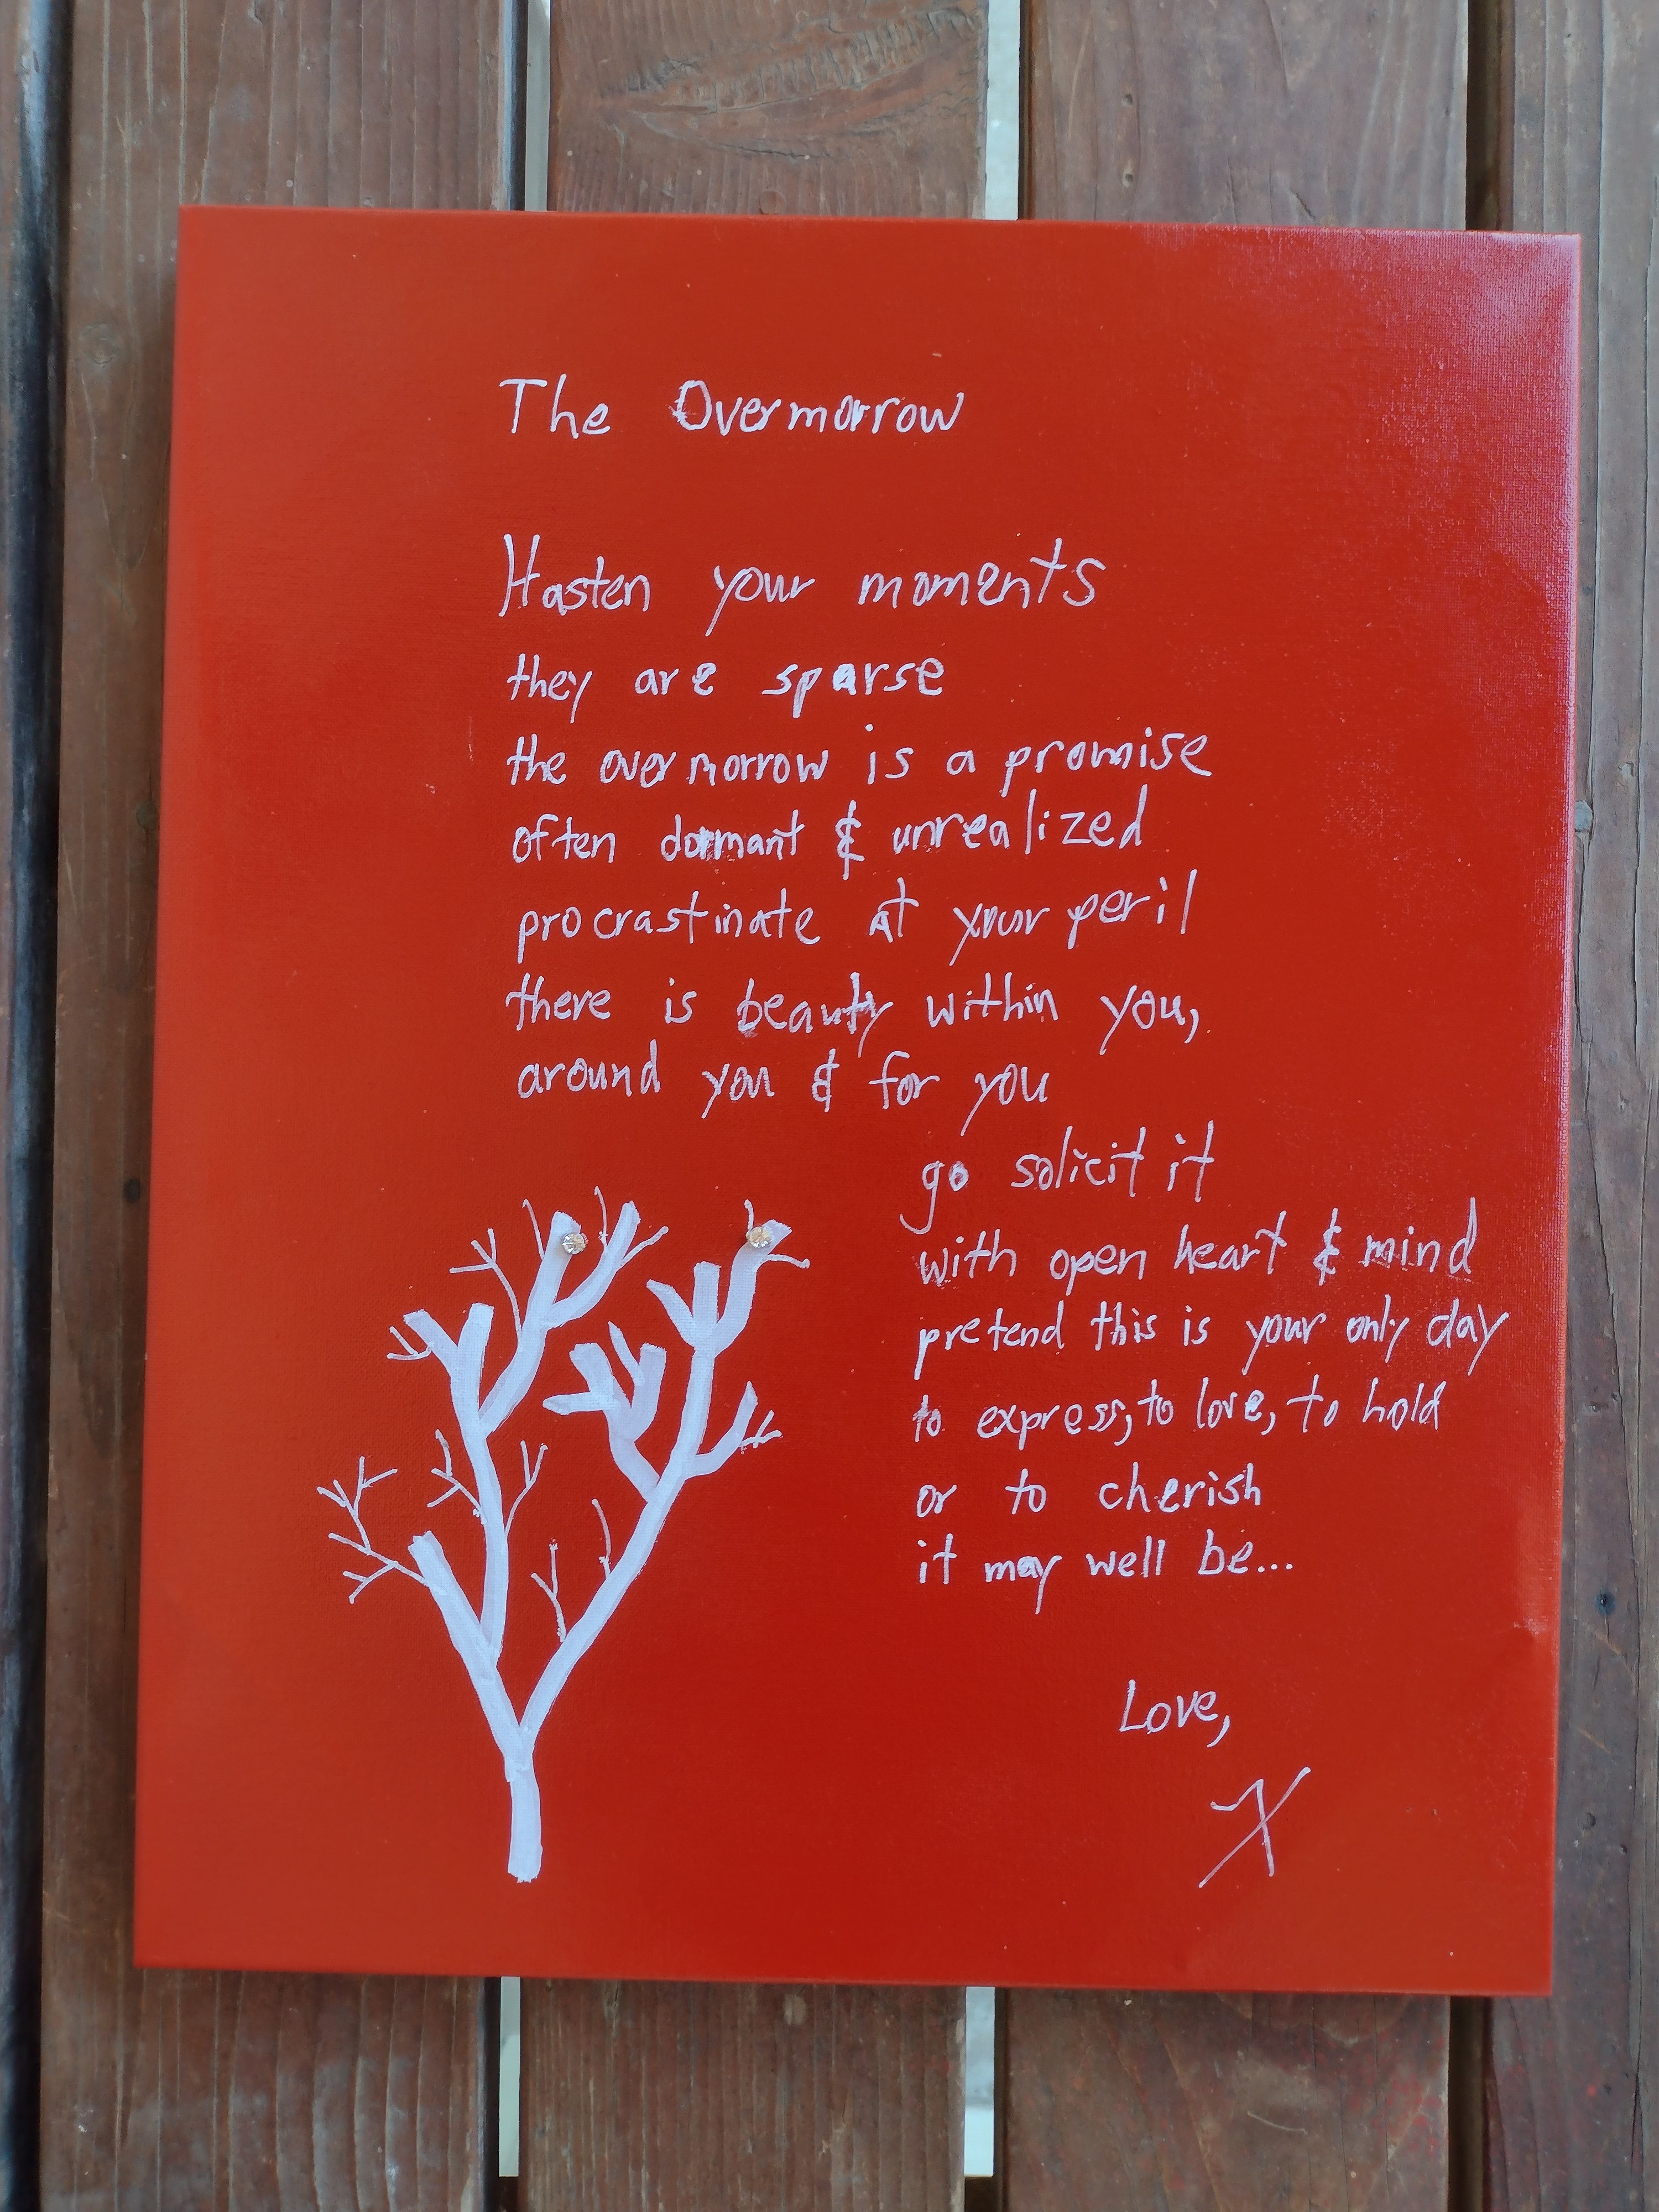 The Overmorrow
Hasten your moments
they are sparse
the overmorrow is a promise
often dormant & unrealized
procrastinate at your peril
there is beauty within you,
around you & for you
go solicit it
with open heart & mind
pretend this is your only day
to express, to love, to hold
or to cherish
it may well be...
Love,
X